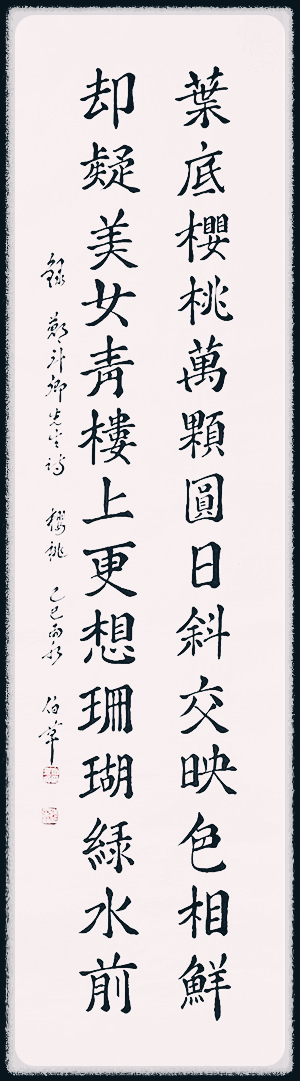 葉底櫻桃萬顆圓日斜交映色相鮮
却疑美女青樓上更想珊瑚綠水前
錄 鄭斗卿先生詩 櫻桃 己巳